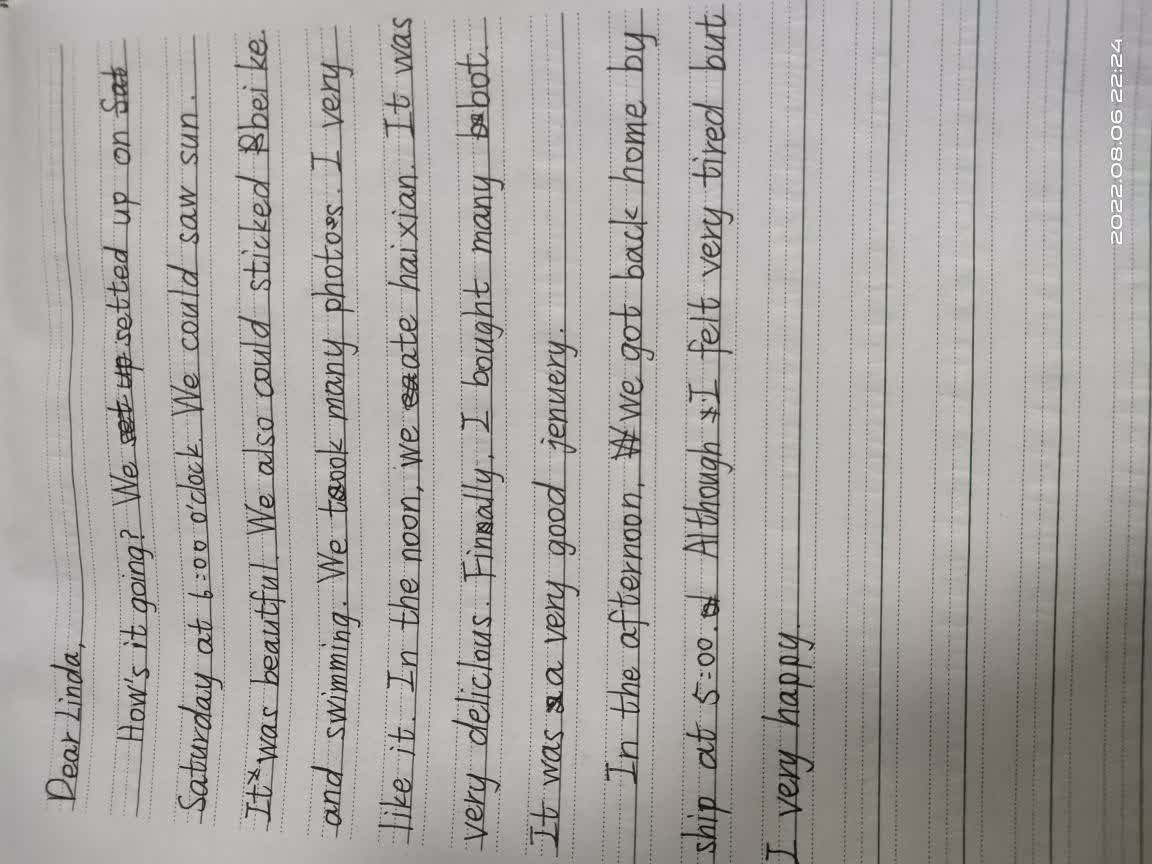 Dear Linda,
How's it going? We set up setted up on Sat
Saturday at 6:00 o'clock. We could saw sun.
It was beautiful. We also could sticked beike
and swimming. We took many photos. I very
like it. In the noon, we ate haixian. It was
very delicious. Finally, I bought many bot.
It was a very good jenuery.
In the afternoon, We got back home by
ship at 5:00. Although I felt very tired but
I very happy.
2022.08.06 22:24